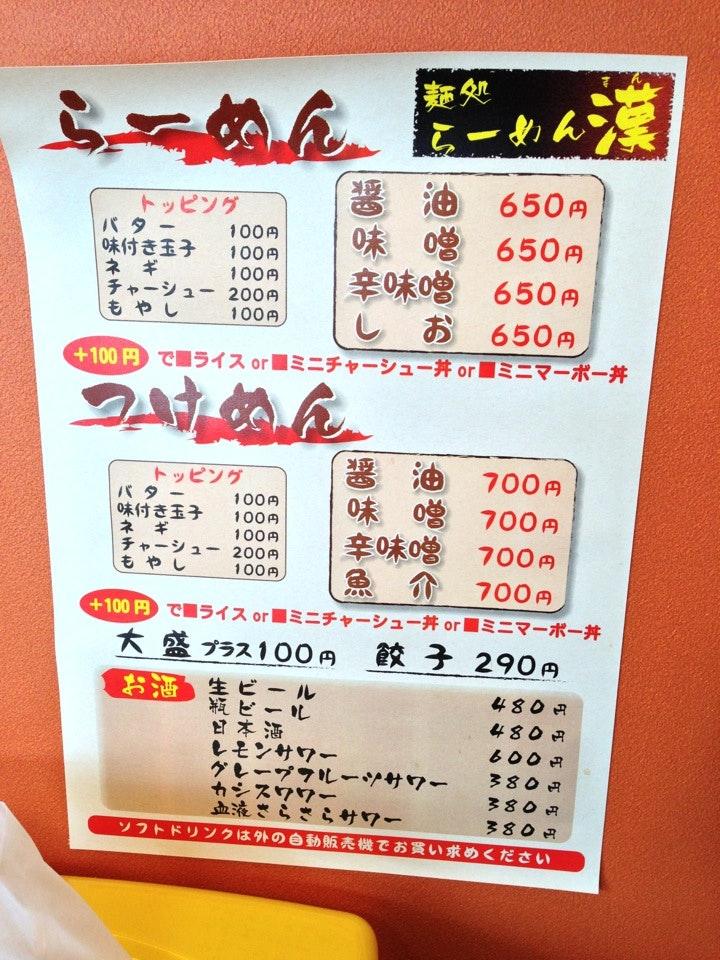 らーめん
麺処
らーめん漢
まん
トッピング
バター 100円
味付き玉子 100円
ネギ 100円
チャーシュー 200円
もやし 100円
醤油 650円
味噌 650円
辛味噌 650円
しお 650円
+100円 で■ライス or ■ミニチャーシュー丼 or ■ミニマーボー丼
つけめん
トッピング
バター 100円
味付き玉子 100円
ネギ 100円
チャーシュー 200円
もやし 100円
醤油 700円
味噌 700円
辛味噌 700円
魚介 700円
+100円 で■ライス or ■ミニチャーシュー丼 or ■ミニマーボー丼
大盛プラス100円 餃子 290円
お酒
生ビール 480円
瓶ビール 480円
日本酒 600円
レモンサワー 380円
グレープフルーツサワー 380円
カシスワワー 380円
血液さらさらサワー
ソフトドリンクは外の自動販売機でお買い求めください